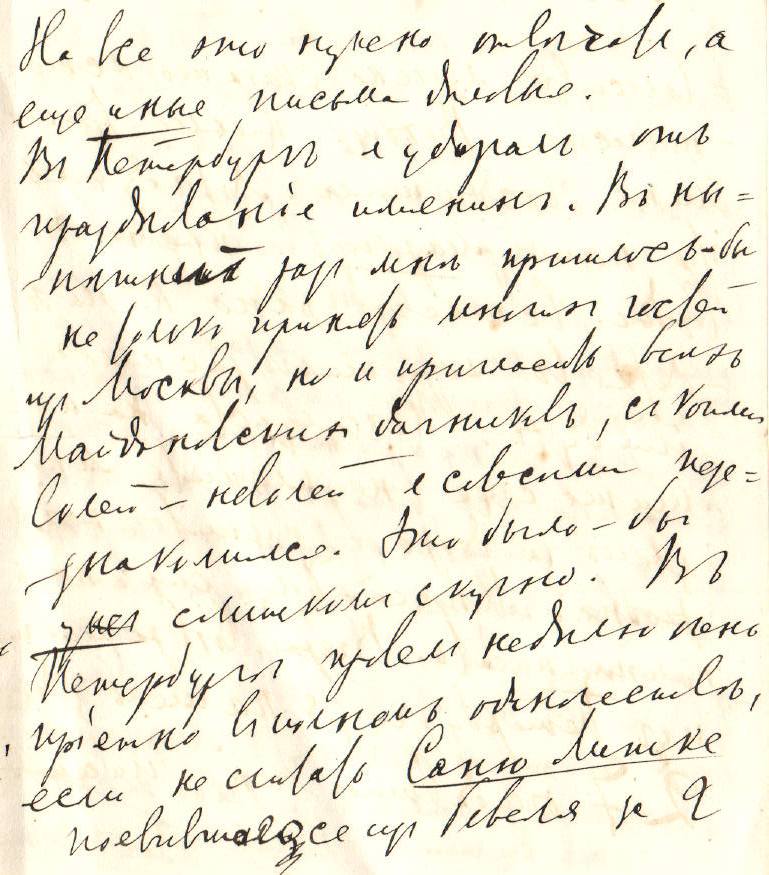 На все это нужно отвѣчать, а
еще иные письма дѣловые.
Въ Петербургъ я удиралъ отъ
празднованіе именинъ. Въ ны=
нѣшній разъ мнѣ пришлось-бы
не только принять многихъ гостей
изъ Москвы, но и пригласить всѣхъ
Майдановскихъ дачниковъ, съ коими
волей-неволей я совсѣми пере=
знакомился. Это было-бы
ужъ слишкомъ скучно. Въ
Петербургѣ провелъ недѣлю очень
пріятно въ полномъ одиночествѣ,
если не считать Саню Литке
появившагося изъ Ревеля за 2